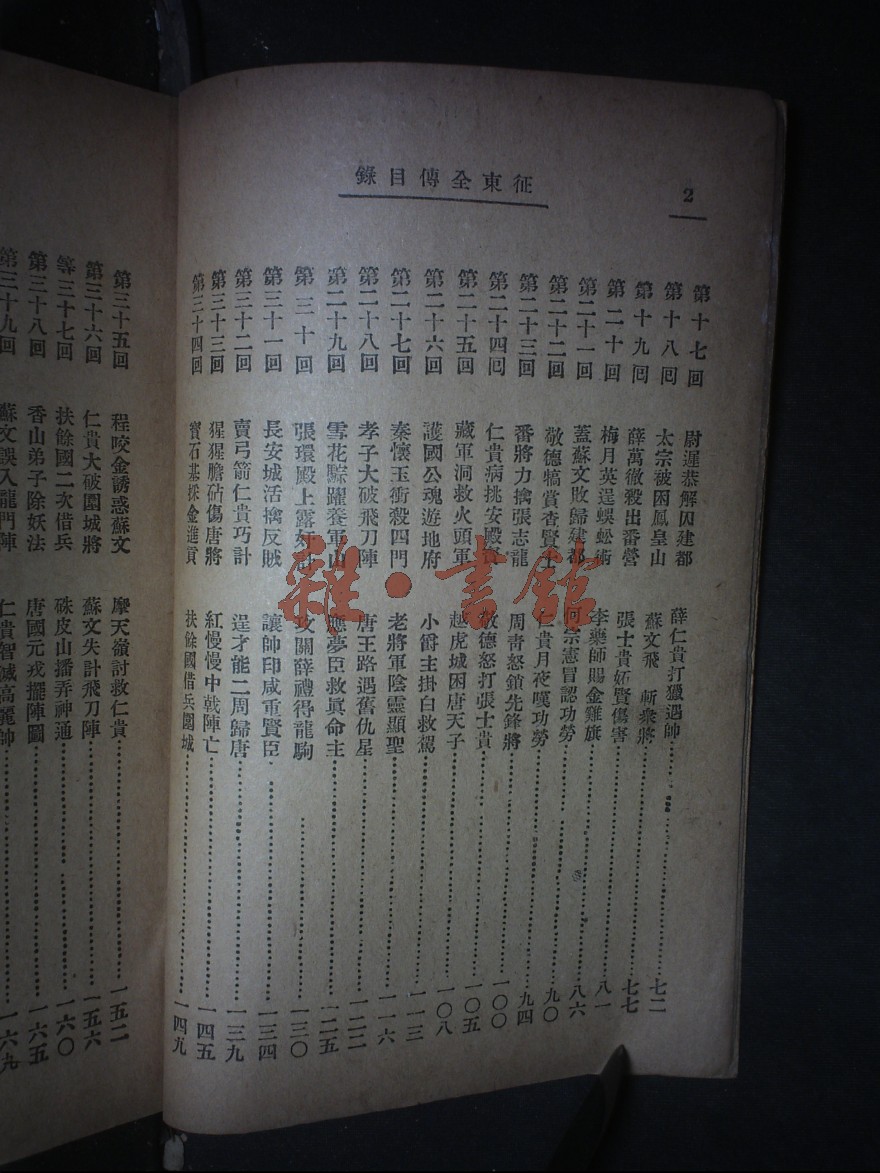 征東全傳目錄
2
第十七回 尉遲恭解囚建都 薛仁貴打獵遇帥……七二
第十八回 太宗被困鳳皇山 蘇文飛 斬衆將……七七
第十九回 薛萬徹殺出番營 張士貴妬賢傷害……八一
第二十回 梅月英逞蜈蚣術 李藥師賜金雞旗……八六
第二十一回 蓋蘇文敗歸建都 何宗憲冒認功勞……九〇
第二十二回 敬德犒賞查賢士 仁貴月夜嘆功勞……九四
第二十三回 番將力擒張志龍 周靑怒鎖先鋒將……一〇〇
第二十四回 仁貴病挑安殿寶 敬德怒打張士貴……一〇五
第二十五回 藏軍洞救火頭軍 越虎城困唐天子……一〇八
第二十六回 護國公魂遊地府 小爵主掛白救駕……一一三
第二十七回 秦懷玉衝殺四門 老將軍陰靈顯聖……一一六
第二十八回 孝子大破飛刀陣 唐王路遇舊仇星……一二二
第二十九回 雪花鬃躍養軍山 應夢臣救眞命主……一二五
第三十回 張環殿上露奸計 攻關薛禮得龍駒……一三〇
第三十一回 長安城活擒反賊 讓帥印咸重賢臣……一三四
第三十二回 賣弓箭仁貴巧計 逞才能二周歸唐……一三九
第三十三回 猩猩膽砧傷唐將 紅慢慢中戟陣亡……一四五
第三十四回 寶石基採金進貢 扶餘國借兵圍城……一四九
第三十五回 程咬金誘惑蘇文 摩天嶺討救仁貴……一五二
第三十六回 仁貴大破圍城將 蘇文失計飛刀陣……一五六
等三十七回 扶餘國二次借兵 硃皮山播弄神通……一六〇
第三十八回 香山弟子除妖法 唐國元戎擺陣圖……一六五
第三十九回 蘇文誤入龍門陣 仁貴智滅高麗帥……一六九
雜·書館